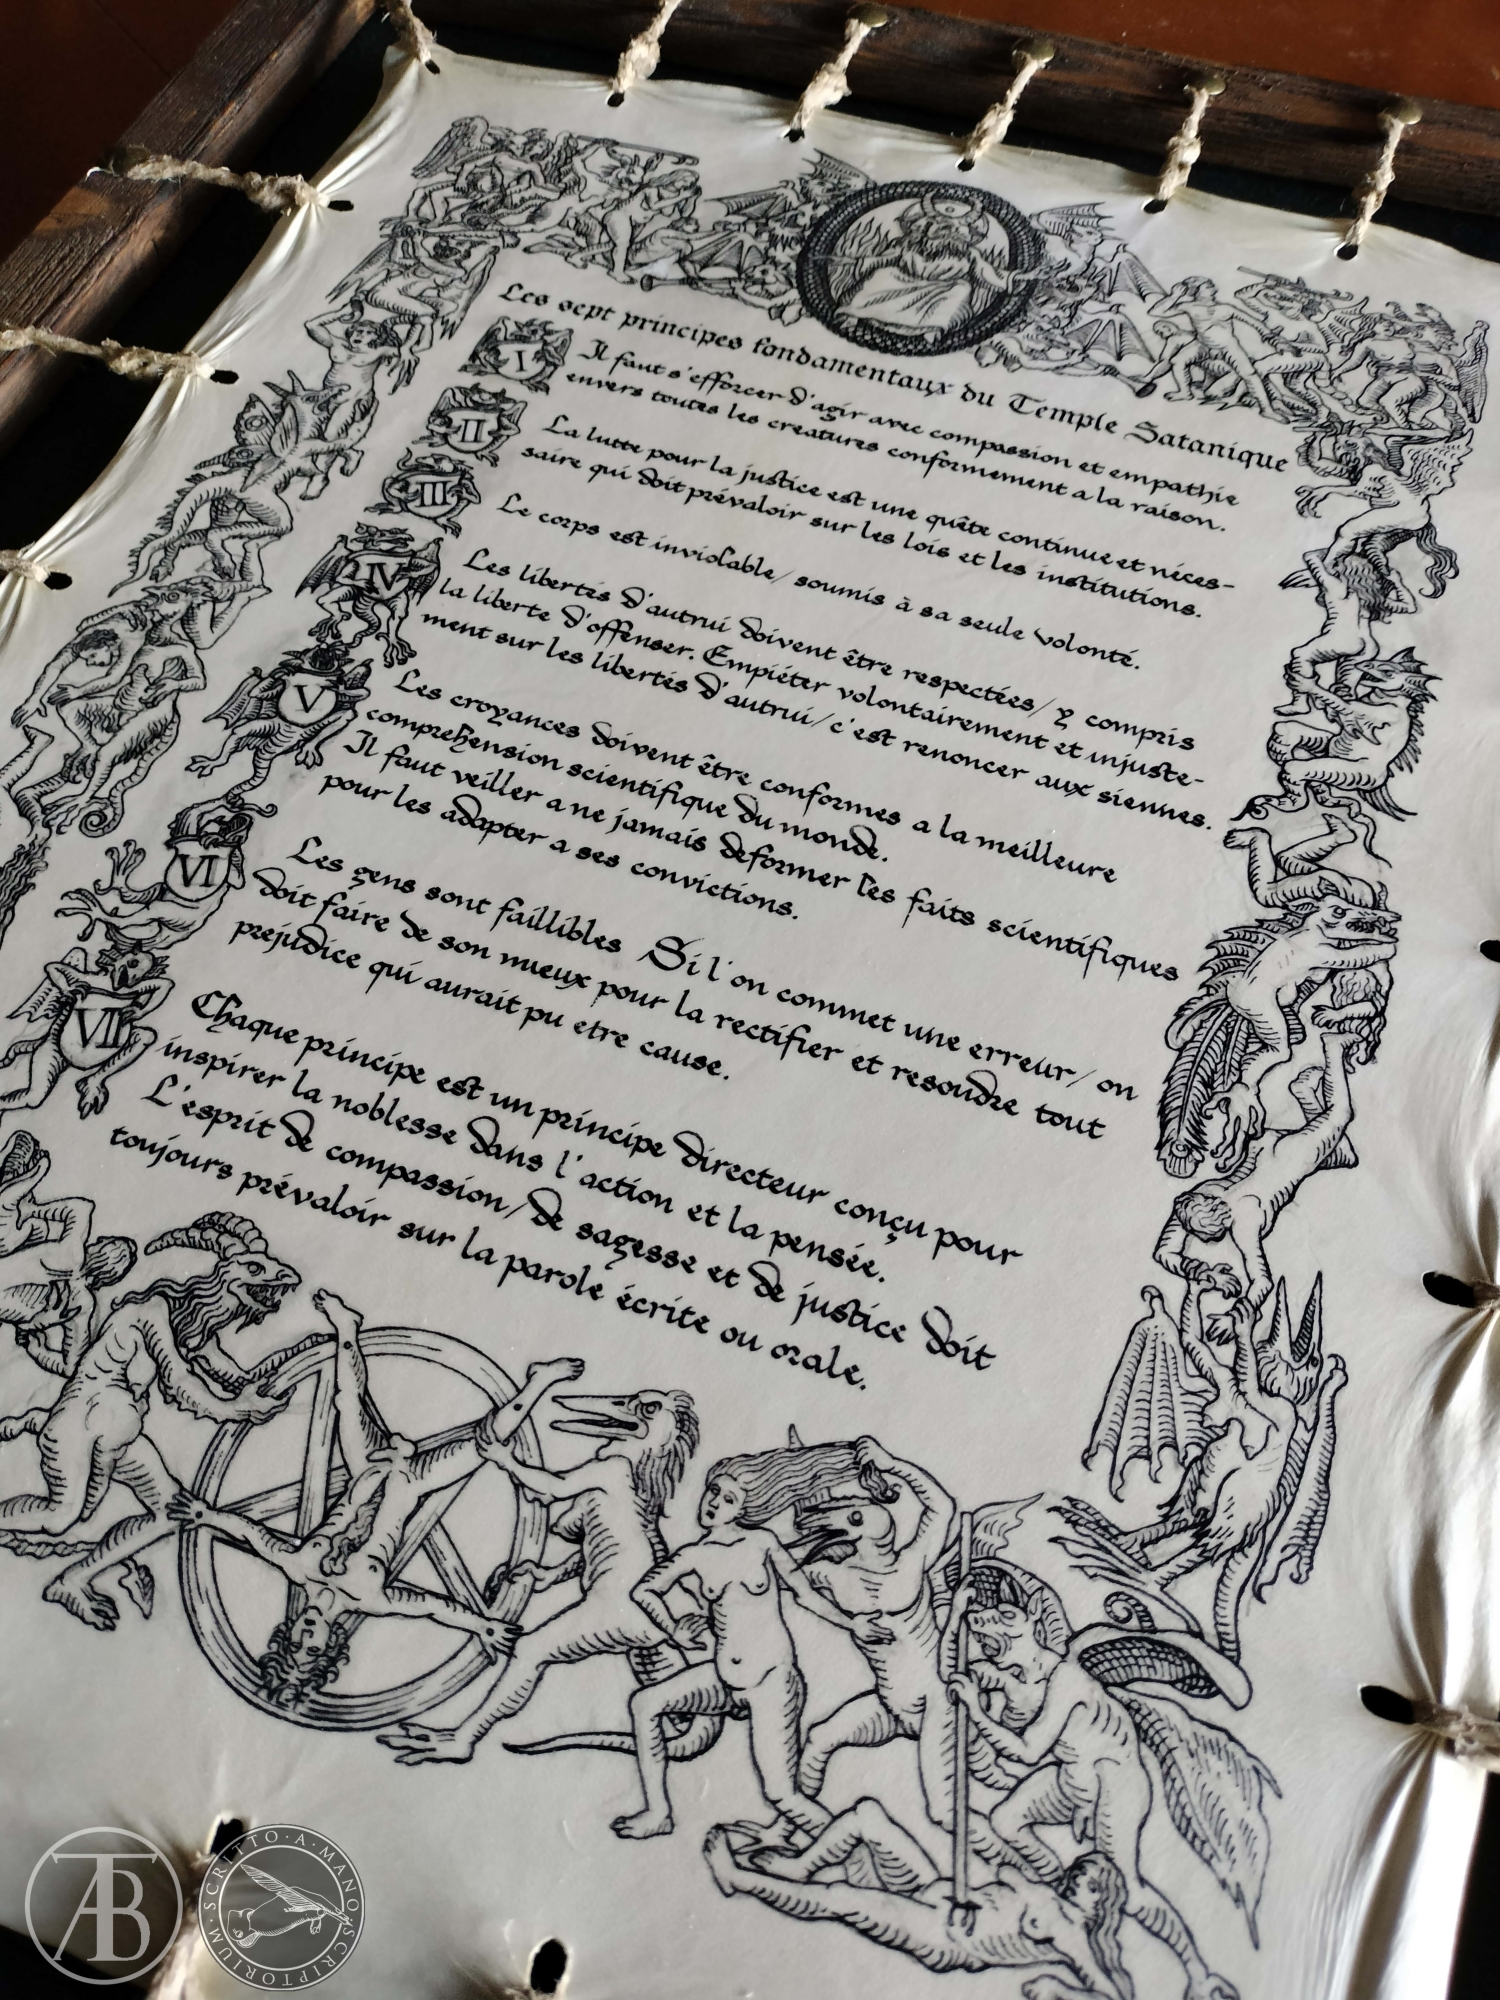 Les sept principes fondamentaux du Temple Satanique
I
Il faut s'efforcer d'agir avec compassion et empathie
envers toutes les creatures conformement a la raison.
II
La lutte pour la justice est une quête continue et néces-
saire qui doit prévaloir sur les lois et les institutions.
III
Le corps est inviolable/ soumis à sa seule volonté.
IV
Les libertés d'autrui doivent être respectées/ y compris
la liberte d'offenser. Empiéter volontairement et injuste-
ment sur les libertés d'autrui/ c'est renoncer aux siennes.
V
Les croyances doivent être conformes a la meilleure
comprehension scientifique du monde.
Il faut veiller a ne jamais deformer les faits scientifiques
pour les adapter a ses convictions.
VI
Les gens sont faillibles Si l'on commet une erreur/ on
doit faire de son mieux pour la rectifier et resoudre tout
prejudice qui aurait pu etre cause.
VII
Chaque principe est un principe directeur conçu pour
inspirer la noblesse dans l'action et la pensée.
L'esprit de compassion/ de sagesse et de justice doit
toujours prévaloir sur la parole écrite ou orale.
TAB
SCRITTO·A·MANO·SCRIPTORIUM·